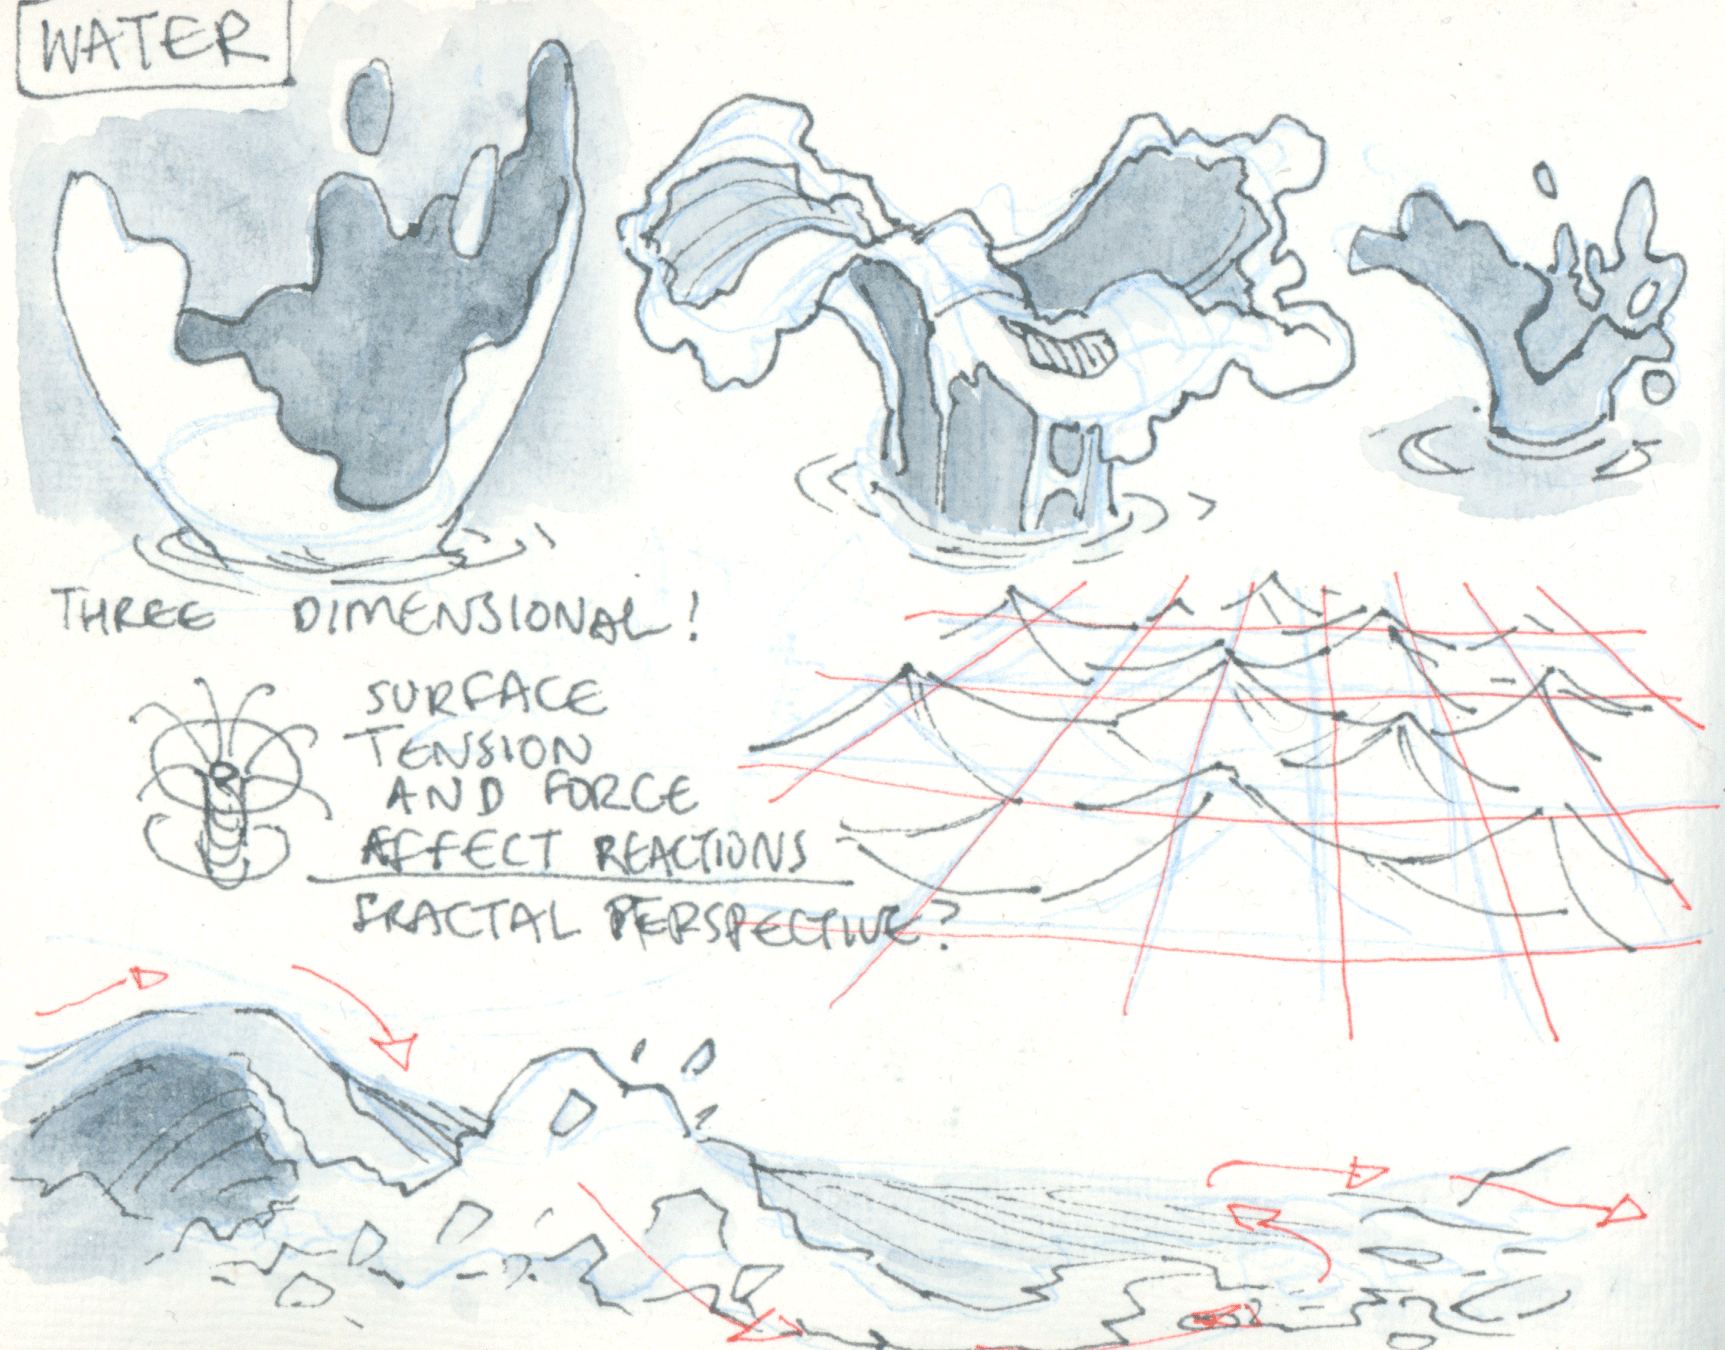 WATER
THREE DIMENSIONAL!
SURFACE
TENSION
AND FORCE
AFFECT REACTIONS
FRACTAL PERSPECTIVE?